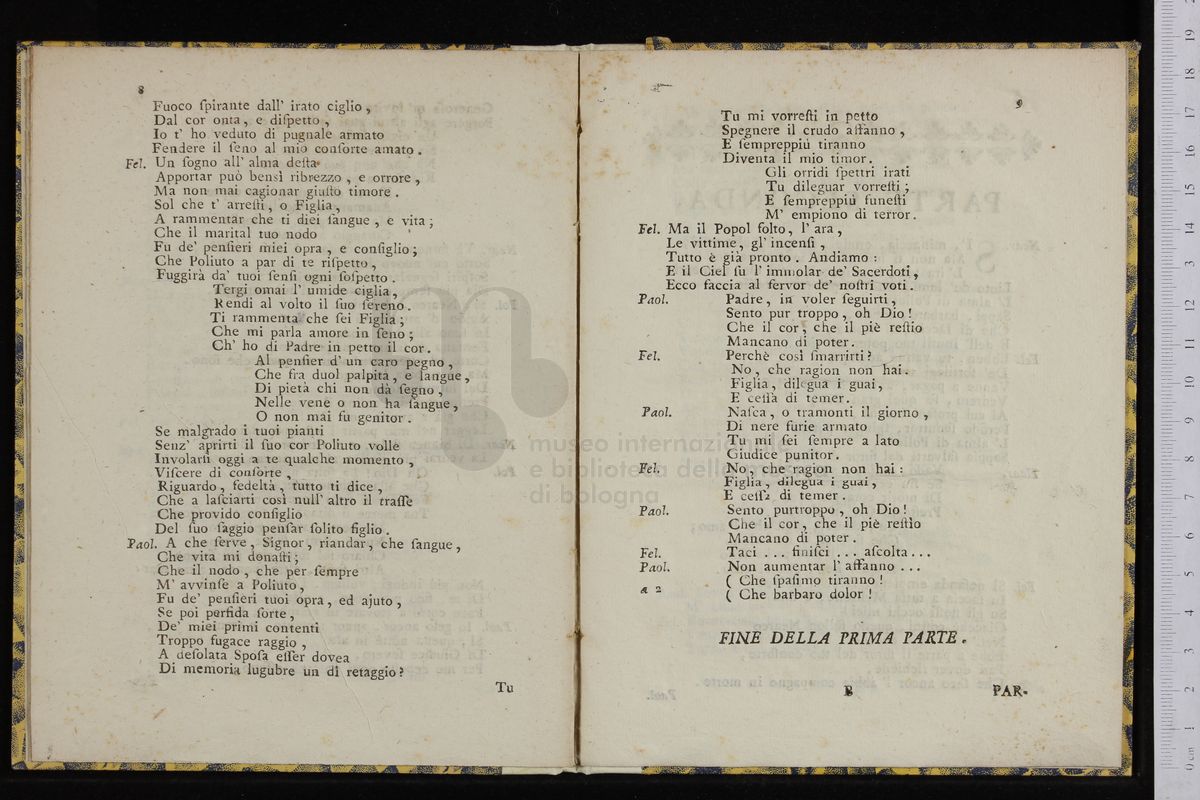 8
Fuoco ſpirante dall' irato ciglio ,
Dal cor onta , e diſpetto ,
Io t' ho veduto di pugnale armato
Fendere il ſeno al mio conſorte amato .
Fel. Un ſogno all' alma deſta
Apportar può bensì ribrezzo , e orrore ,
Ma non mai cagionar giuſto timore .
Sol che t' arreſti , o Figlia ,
A rammentar che ti diei ſangue , e vita ;
Che il marital tuo nodo
Fu de' penſieri miei opra , e conſiglio ;
Che Poliuto a par di te riſpetto ,
Fuggirà da' tuoi ſenſi ogni ſoſpetto .
Tergi omai l' umide ciglia ,
Rendi al volto il ſuo ſereno .
Ti rammenta che ſei Figlia ;
Che mi parla amore in ſeno ;
Ch' ho di Padre in petto il cor .
Al penſier d' un caro pegno ,
Che fra duol palpita , e langue ,
Di pietà chi non dà ſegno ,
Nelle vene o non ha ſangue ,
O non mai fu genitor .
Se malgrado i tuoi pianti
Senz' aprirti il ſuo cor Poliuto volle
Involarſi oggi a te qualche momento ,
Viſcere di conſorte ,
Riguardo , fedeltà , tutto ti dice ,
Che a laſciarti così null' altro il traſſe
Che provido conſiglio
Del ſuo ſaggio penſar ſolito figlio .
Paol. A che ſerve , Signor , riandar , che ſangue ,
Che vita mi donaſti ;
Che il nodo , che per ſempre
M' avvinſe a Poliuto ,
Fu de' penſieri tuoi opra , ed ajuto ,
Se poi perfida ſorte ,
De' miei primi contenti
Troppo fugace raggio ,
A deſolata Spoſa eſſer dovea
Di memoria lugubre un dì retaggio ?
Tu
9
Tu mi vorreſti in petto
Spegnere il crudo affanno ,
E ſempreppiù tiranno
Diventa il mio timor .
Gli orridi ſpettri irati
Tu dileguar vorreſti ;
E ſempreppiù funeſti
M' empiono di terror .
Fel. Ma il Popol folto , l' ara ,
Le vittime , gl' incenſi ,
Tutto è già pronto . Andiamo :
E il Ciel ſu l' immolar de' Sacerdoti ,
Ecco faccia al fervor de' noſtri voti .
Paol. Padre , in voler ſeguirti ,
Sento pur troppo , oh Dio !
Che il cor , che il piè reſtio
Mancano di poter .
Fel. Perchè così ſmarrirti ?
No , che ragion non hai .
Figlia , dilegua i guai ,
E ceſſa di temer .
Paol. Naſca , o tramonti il giorno ,
Di nere furie armato
Tu mi ſei ſempre a lato
Giudice punitor .
Fel. No , che ragion non hai :
Figlia , dilegua i guai ,
E ceſſa di temer .
Paol. Sento purtroppo , oh Dio !
Che il cor , che il piè reſtio
Mancano di poter .
Fel. Taci . . . finiſci . . . aſcolta . . .
Paol. Non aumentar l' affanno . . .
( Che ſpaſimo tiranno !
a 2
( Che barbaro dolor !
FINE DELLA PRIMA PARTE .
B
PAR-
museo internazionale
e biblioteca della
di bologna